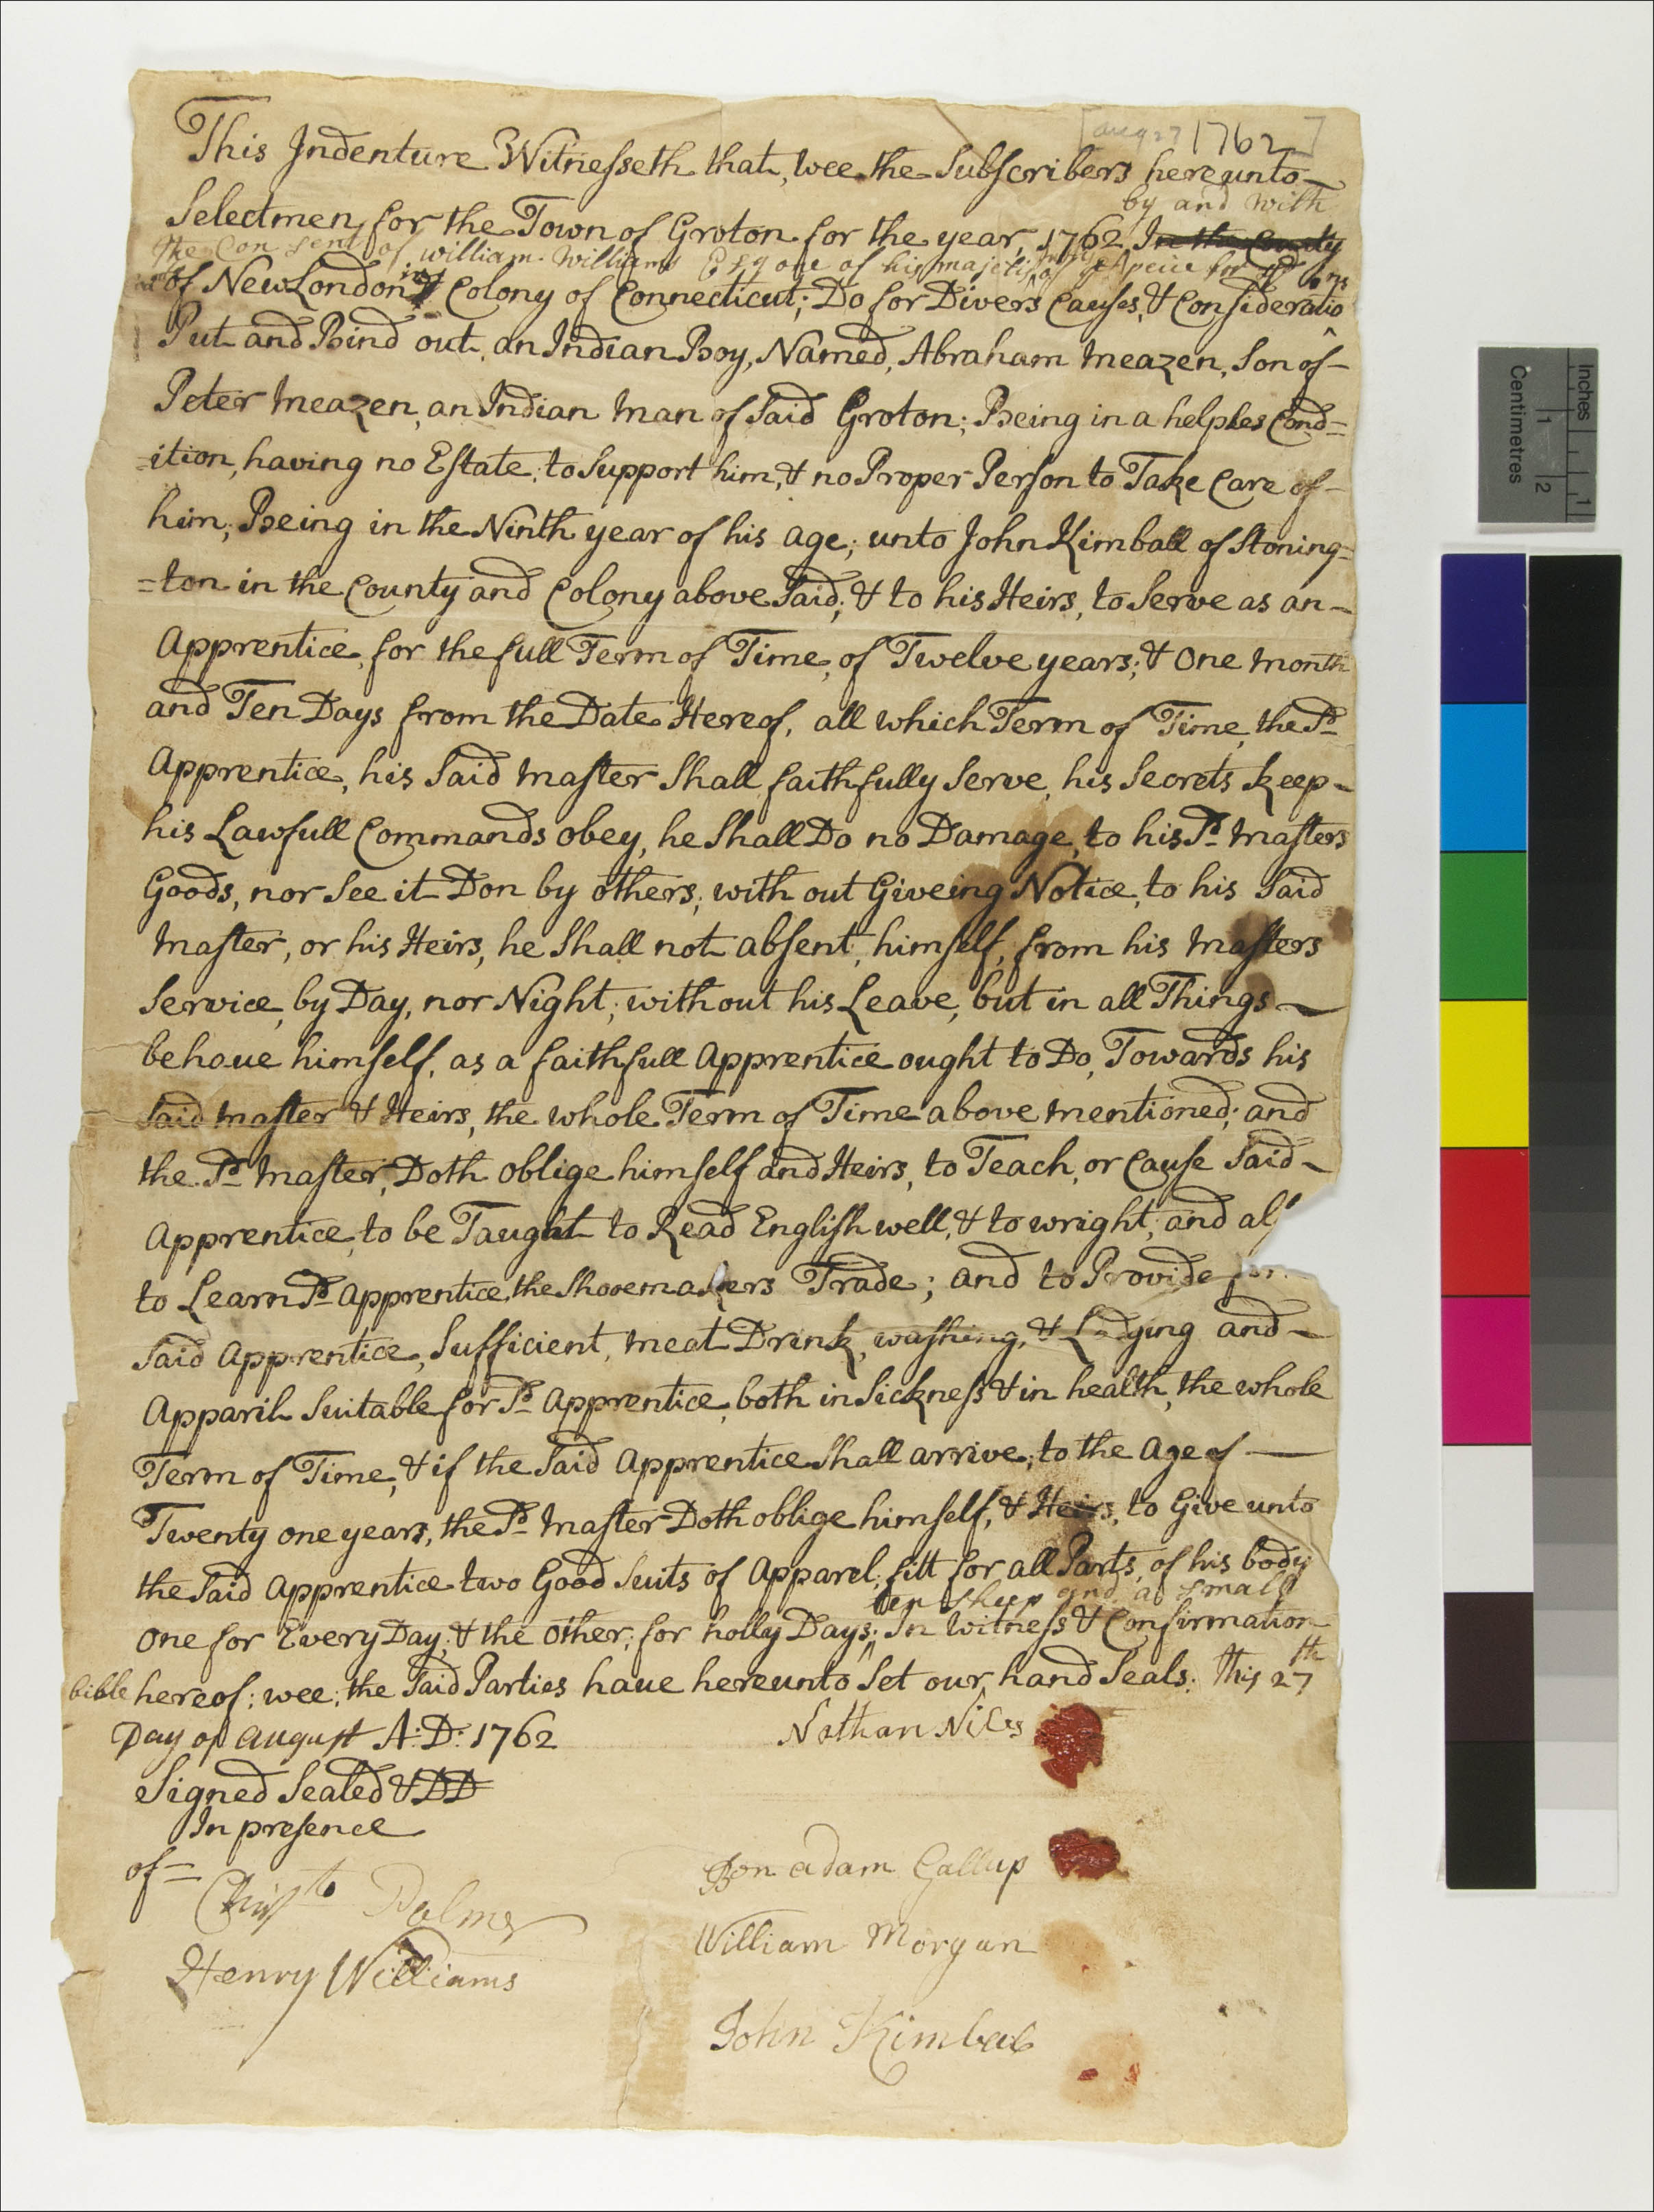 [aug 27 1762]
This Indenture Witnesseth that, wee the Subscribers hereunto
by and with
Selectmen, for the Town of Groton for the year, 1762, In the County
the Consent of william Williams Esq one of his majestis of ye peice for sd
of New London & Colony of Connecticut; Do for Divers Causes, & Considerations
Put and Bind out, an Indian Boy, Named, Abraham Meazen, Son of
Peter Meazen, an Indian man of Said Groton; Being in a helples Cond=
=ition, having no Estate, to Support him, & no Proper Person to Take Care of
him, Being in the Ninth year of his age; unto John Kimball of Stoning=
=ton in the County and Colony above Said; & to his Heirs, to Serve as an
Apprentice, for the full Term of Time, of Twelve years; & One month
and Ten Days from the Date Hereof, all which Term of Time, the Sd
Apprentice, his Said Master Shall faithfully Serve, his Secrets keep
his Lawfull Commands obey, he Shall Do no Damage, to his Sd Masters
Goods, nor See it Don by others; with out Giveing Notice, to his Said
Master, or his Heirs, he Shall not absent, himself, from his Masters
Service, by Day, nor Night; without his Leave, but in all Things
behave himself, as a faithfull Apprentice ought to Do, Towards his
Said Master & Heirs, the whole Term of Time above mentioned; and
the Sd Master, Doth oblige himself and Heirs, to Teach, or Cause Said
Apprentice, to be Taught to Read English well, & to wright; and als
to Learn Sd Apprentice, the Shooemakers Trade; and to Provide for
Said Apprentice, Sufficient, meat Drink, washing, & Lodging and
Apparil Suitable for Sd Apprentice, both in Sickness & in health, the whole
Term of Time, & if the Said Apprentice Shall arrive, to the Age of
Twenty one years, the Sd Master Doth oblige himself, & Heirs, to Give unto
the Said Apprentice two Good Suits of Apparel, fitt for all Parts, of his body
ten Sheep and a Small
One for Every Day, & the Other, for holly Days; In Witness & Confirmation
bible hereof; wee, the Said Parties have hereunto Set our, hand Seals. this 27th
Day of August A:D: 1762
Nathan Niles
Signed Sealed & DD
In presence
of=
Christo Palmer
Henry Williams
Ben adam Gallup
William Morgan
John Kimbal
Inches
1
Centimetres
1
2